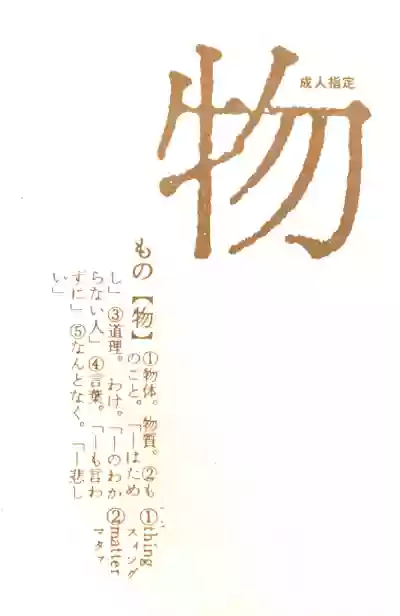 物
成人指定
もの【物】
①物体。物質。②も
のこと。「―はため
し」③道理。わけ。「―のわか
らない人」④言葉。「―も言わ
ずに」⑤なんとなく。「―悲し
い」
①thing
スィング
②matter
マタァ